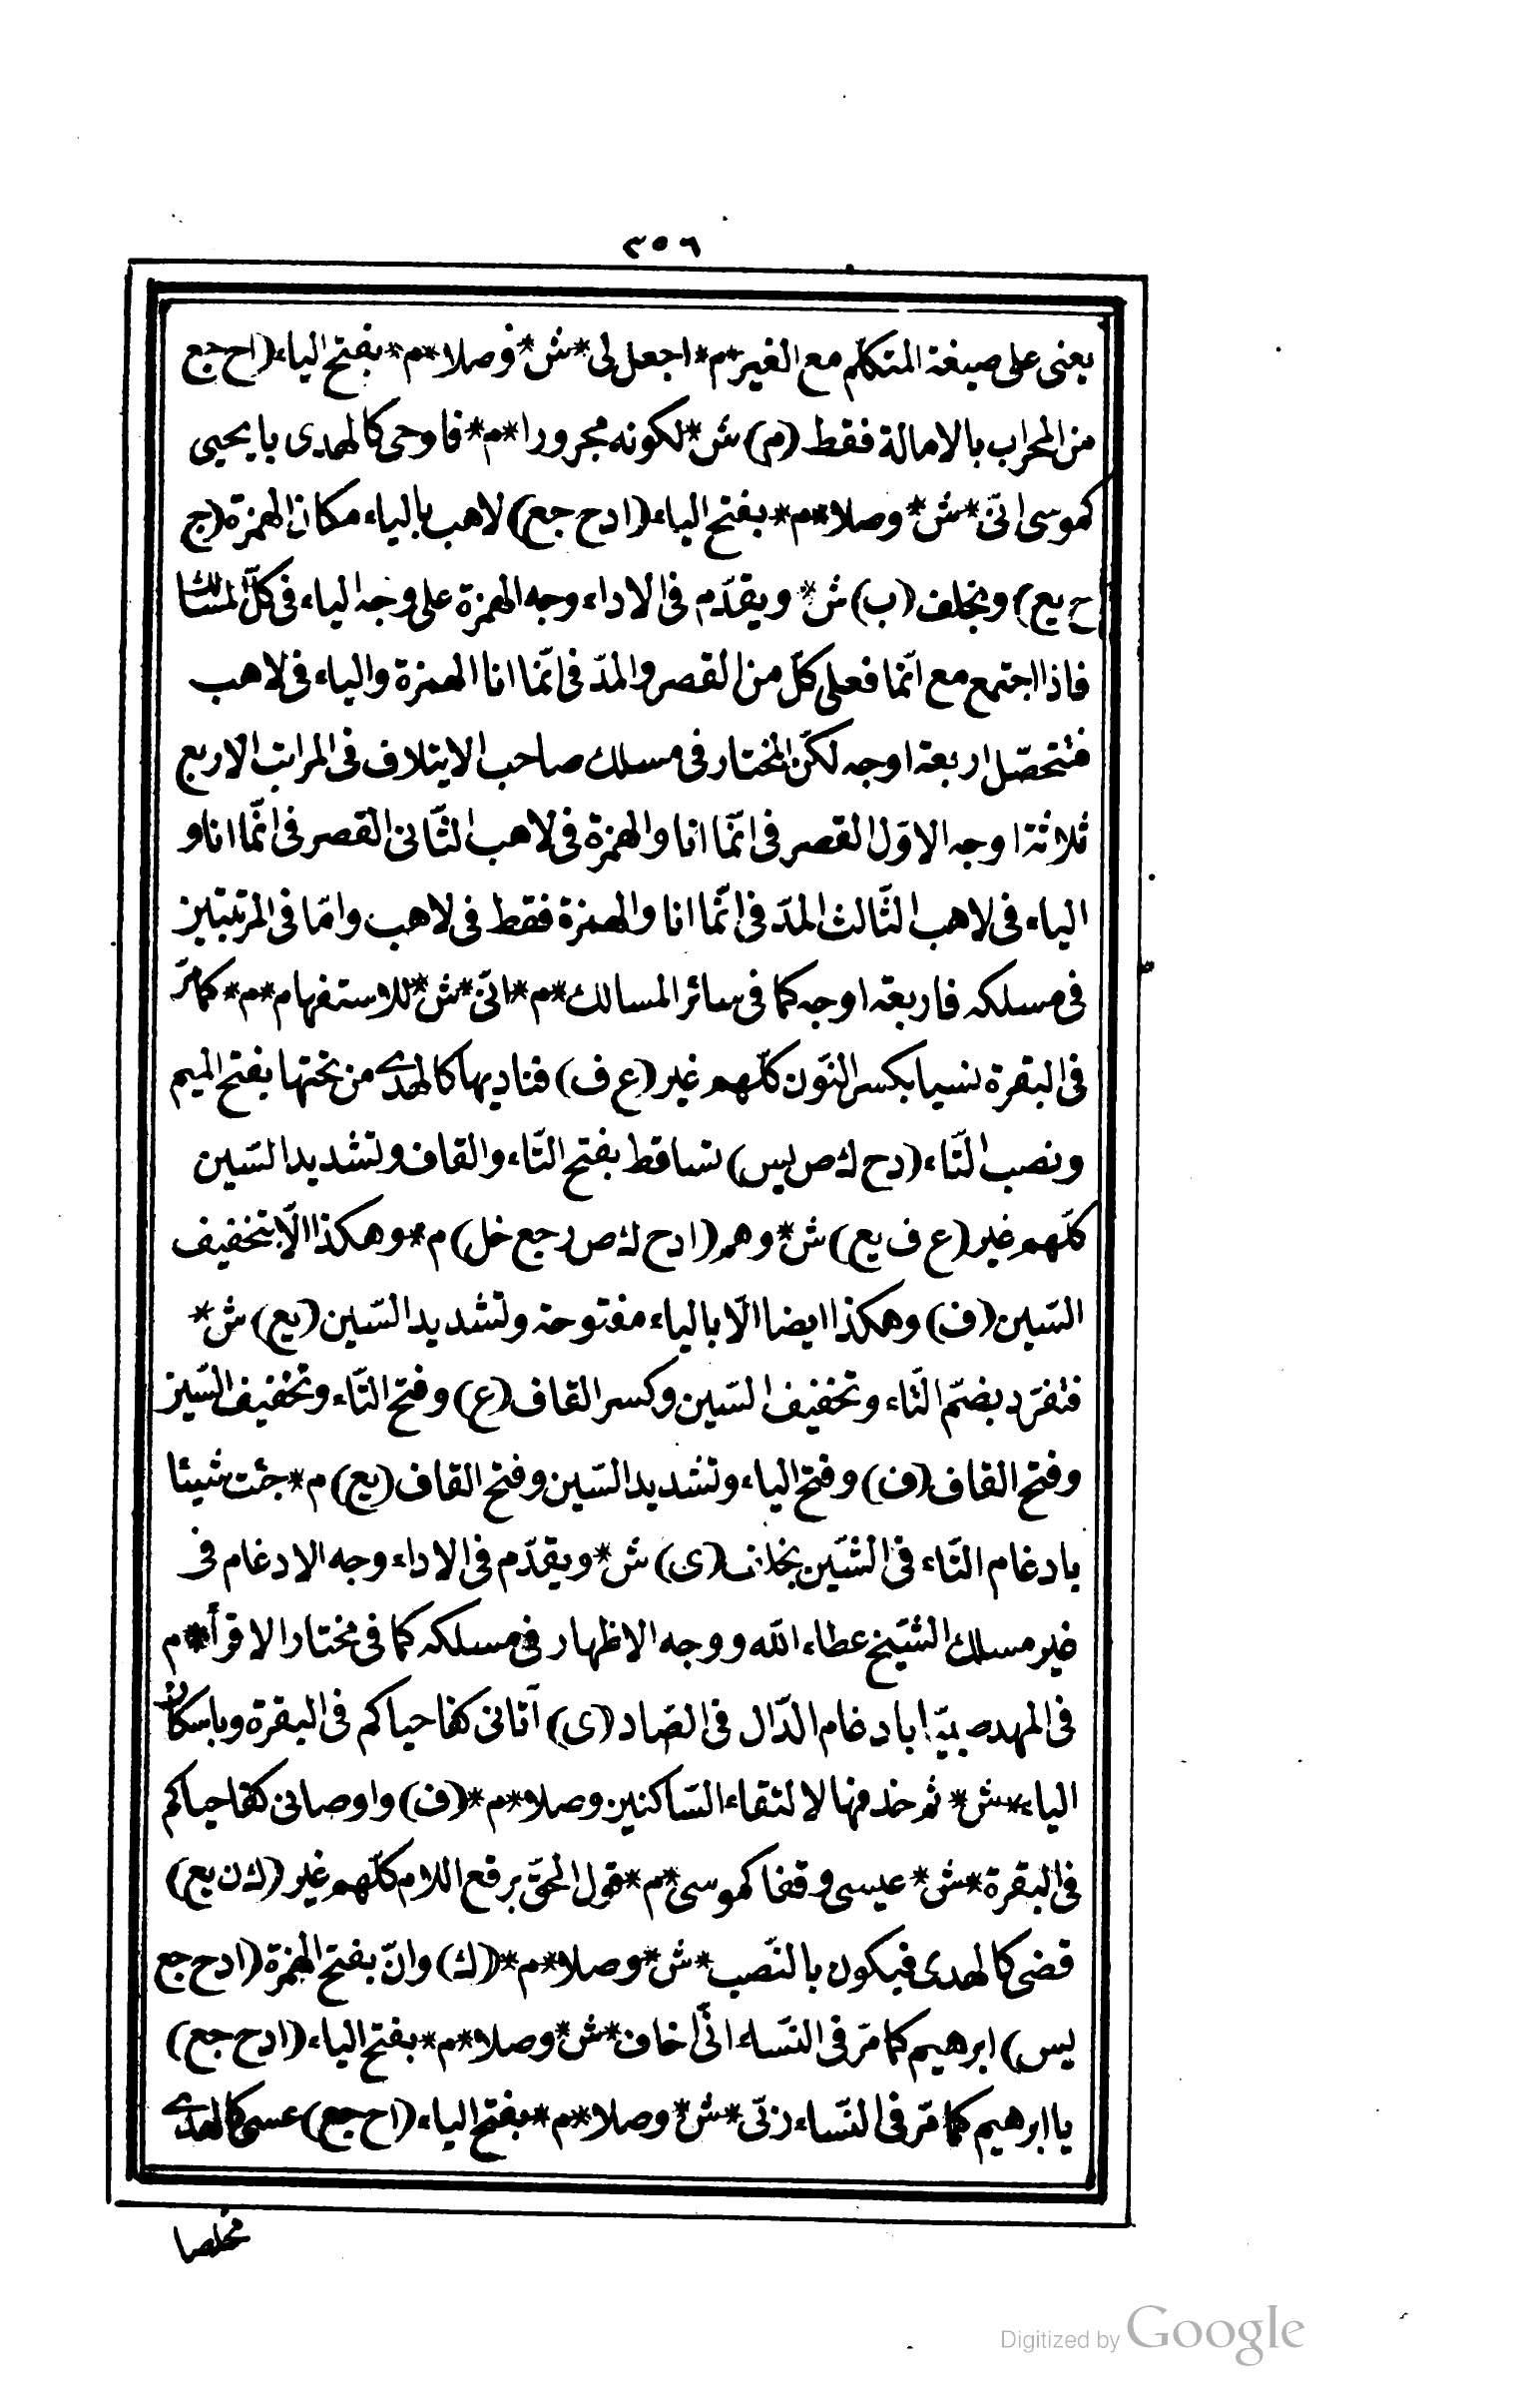 ٢٥٦
يعنى على صيغة المتكلم مع الغير*م* اجعل لى *ش* وصلا*م* بفتح الياء (اح جع
من المحراب بالامالة فقط (م) ش* لكونه مجرورا*م* فاوحى كالهدى يا يحيى
كموسى انّى *ش* وصلا*م* بفتح الياء (ادح جع) لاهب بالياء مكان الهمزة (ج
ح يع) وبخلف (ب) ش* ويقدّم فى الاداء وجه الهمزة على وجه الياء فى كلّ المسالك
فاذا اجتمع مع انّما فعلى كلّ من القصر والمدّ فى انّما انا الهمزة والياء فى لاهب
فتحصّل اربعة اوجه لكنّ المختار فى مسلك صاحب الايتلاف فى المراتب الاربع
ثلاثة اوجه الاوّل القصر فى انّما انا والهمزة فى لاهب الثّانى القصر فى انّما انا و
الياء فى لاهب الثّالث المدّ فى انّما انا والهمزة فقط فى لاهب وامّا فى المرتبتين
فى مسلكه فاربعة اوجه كما فى سائر المسالك*م* انّى *ش* للاستفهام*م* كما مرّ
فى البقرة نسيا بكسر النّون كلّهم غير (ع ف) فناديها كالهدى من تحتها بفتح الميم
ونصب التّاء (دح ك ص يس) تساقط بفتح التّاء والقاف وتشديد السّين
كلّهم غير (ع ف يع) ش* وهم (ادح ك ص ر جع خل) م* وهكذا الّا بتخفيف
السّين (ف) وهكذا ايضا الّا بالياء مفتوحة وتشديد السّين (يع) ش*
فتفرّد بضمّ التّاء وتخفيف السّين وكسر القاف (ع) وفتح التّاء وتخفيف السّين
وفتح القاف (ف) وفتح الياء وتشديد السّين وفتح القاف (يع) م* جئت شيئا
بادغام التّاء فى الشّين بخلاف (ى) ش* ويقدّم فى الاداء وجه الادغام فى
غير مسلك الشّيخ عطاء الله ووجه الاظهار فى مسلكه كما فى مختار الاقرأ*م
فى المهد صبيّا بادغام الدّال فى الصّاد (ى) آتانى كفاحياكم فى البقرة وباسكان
الياء*ش* ثم حذفها لالتقاء السّاكنين وصلا*م* (ف) واوصانى كفاحياكم
فى البقرة *ش* عيسى وقفا كموسى*م* قول الحقّ برفع اللام كلّهم غير (ك ن يع)
قضى كالهدى فيكون بالنّصب *ش* وصلا*م* (ك) وانّ بفتح الهمزة (ادح جع
يس) ابرهيم كما مرّ فى النّساء انّى اخاف *ش* وصلا*م* بفتح الياء (ادح جع)
يا ابرهيم كما مرّ فى النّساء ربّى *ش* وصلا*م* بفتح الياء (اح جع) عسى كالهدى
مخلصا
Digitized by Google